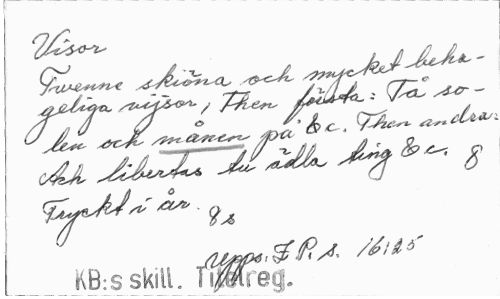 Visor
Twenne skiöna och mycket beha-
geliga wijsor, Then första: Tå so-
len och månen på &c. Then andra:
Ach libertas tu ädla ting &c. 8
Tryckt i år. 8 s
Upps. F. P. s. 16:25
KB:s skill. Titelreg.